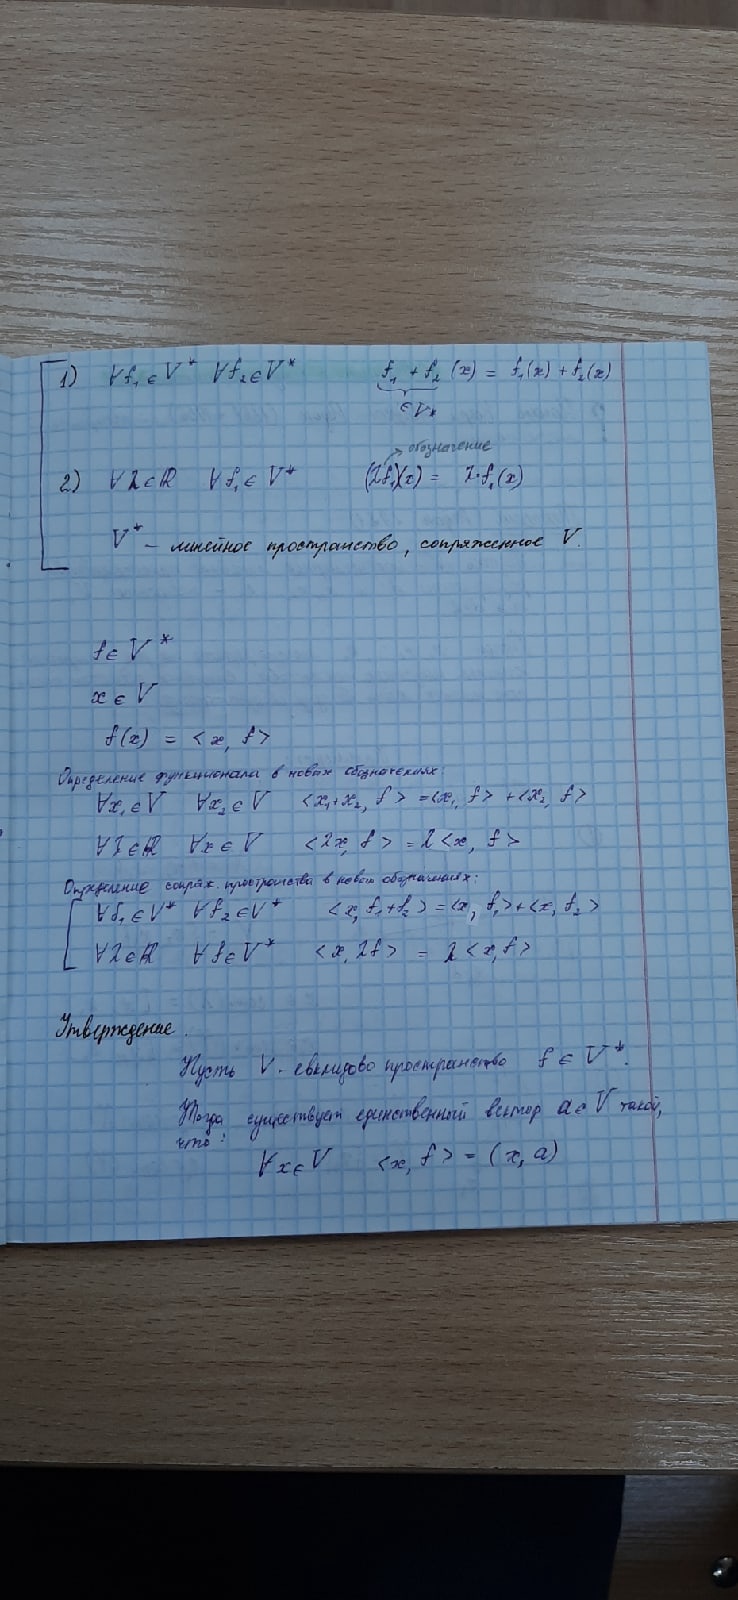 1) ∀f₁∈V* ∀f₂∈V* f₁ + f₂ (x) = f₁(x) + f₂(x)
∈V*
обозначение
2) ∀λ∈ℝ ∀f₁∈V* (λf₁)(x) = λ·f₁(x)
V* – линейное пространство, сопряженное V.
f∈V*
x∈V
f(x) = <x, f>
Определение функционала в новых обозначениях:
∀x₁∈V ∀x₂∈V <x₁+x₂, f> = <x₁, f> + <x₂, f>
∀λ∈ℝ ∀x∈V <λx, f> = λ<x, f>
Определение сопряж. пространства в новых обозначениях:
∀f₁∈V* ∀f₂∈V* <x, f₁+f₂> = <x, f₁> + <x, f₂>
∀λ∈ℝ ∀f∈V* <x, λf> = λ<x, f>
Утверждение.
Пусть V - евклидово пространство f∈V*.
Тогда существует единственный вектор a∈V такой,
что:
∀x∈V <x, f> = (x, a)